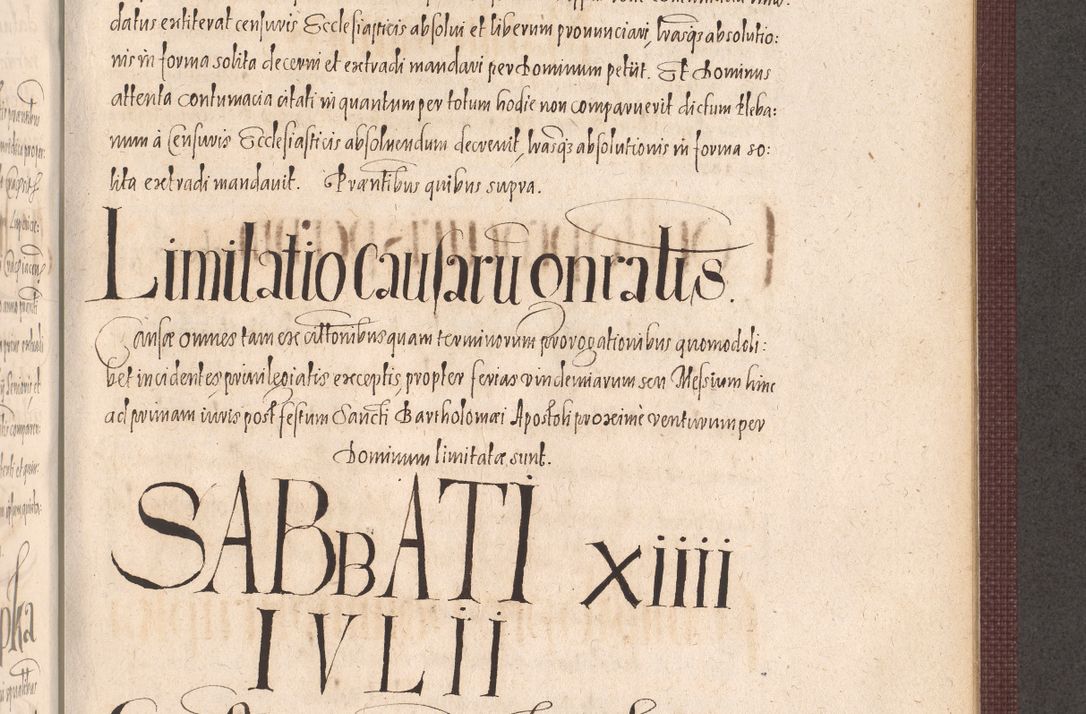 datus extiterat censuris Ecclesiasticis absolui et liberum pronunciari, lrasq3 absolutio:
nis in forma solita decerni et extradi mandari per Dominum petiit. Et Dominus
attenta contumacia citati in quantum per totum hodie non comparuerit dictum Pleba:
num à Censuris Ecclesiasticis absoluendum decreuit, lrasq3 absolutionis in forma so:
lita extradi mandauit. Præntibus quibus supra.
Limitatio Causarũ onratis.
Causæ omnes tam ex cittonibus quam terminorum prorogationibus quomodoli:
bet incidentes, priuilegiatis exceptis, propter ferias vindemiarum seu Messium hinc
ad primam iuris post festum Sancti Bartholomæi Apostoli proxime venturum per
Dominum limitatæ sunt.
SABBATI xiiii
IVLII